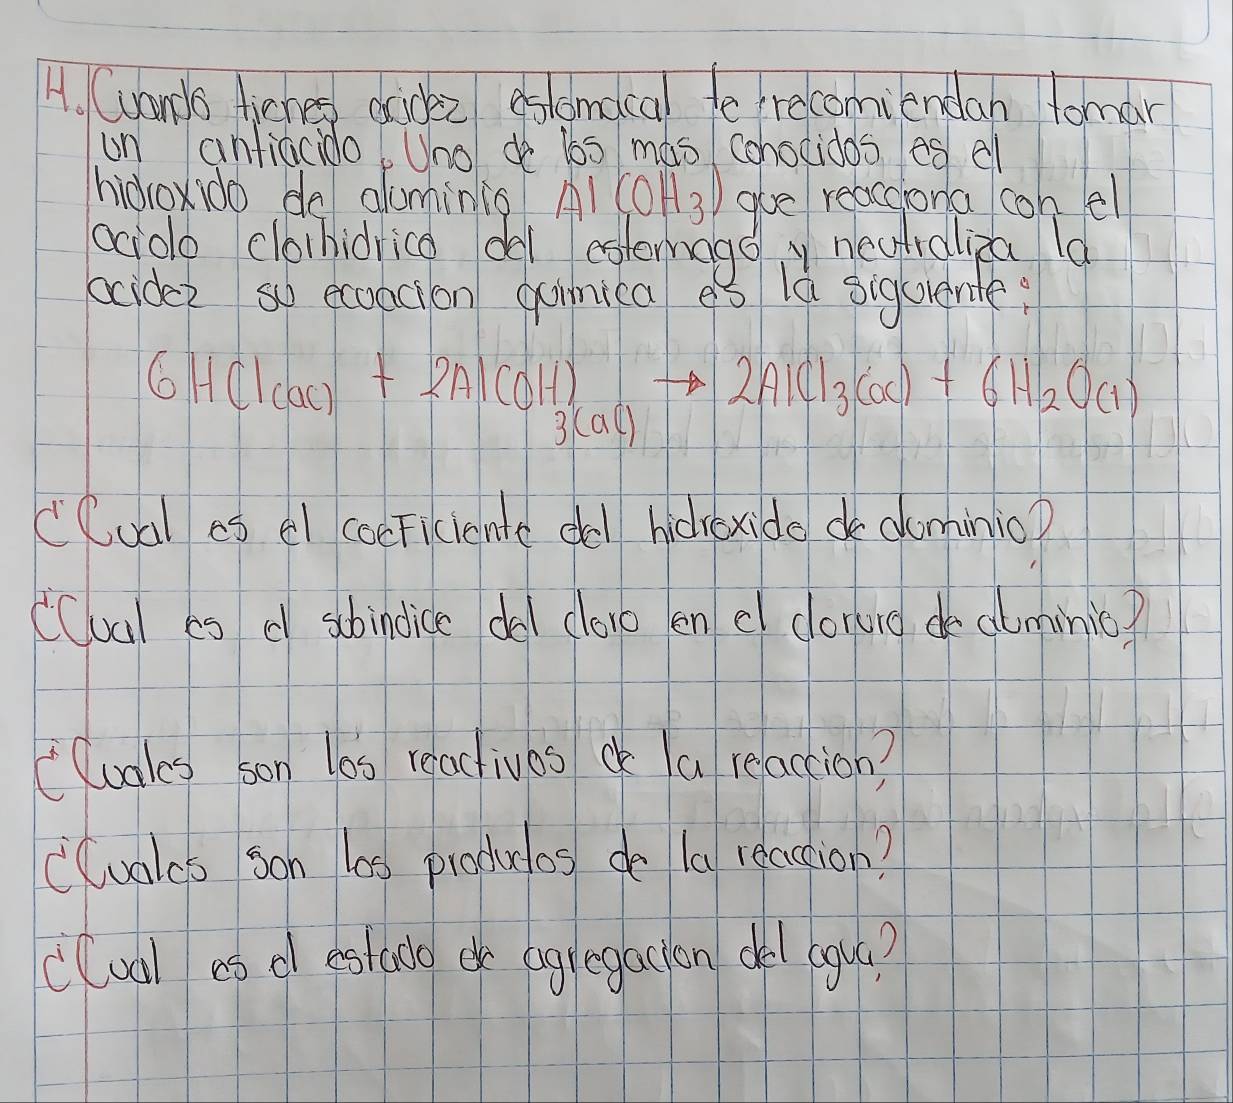 4. Cuando tienes acidez estomacal te recomiendan tomar
un antiacido. Uno de los mas conocidos es el
hidroxido de aluminio Al(OH3) que reacciona con el
acido clorhidrico del estomago y neutraliza la
acidez su ecuacion quimica es la siguiente:
6HCl(ac) + 2Al(OH)3(ac) → 2AlCl3(ac) + 6H2O(l)
¿Cual es el coeficiente del hidroxido de aluminio?
¿Cual es el subindice del cloro en el cloruro de aluminio?
¿Cuales son los reactivos de la reaccion?
¿Cuales son los productos de la reaccion?
¿Cual es el estado de agregacion del agua?